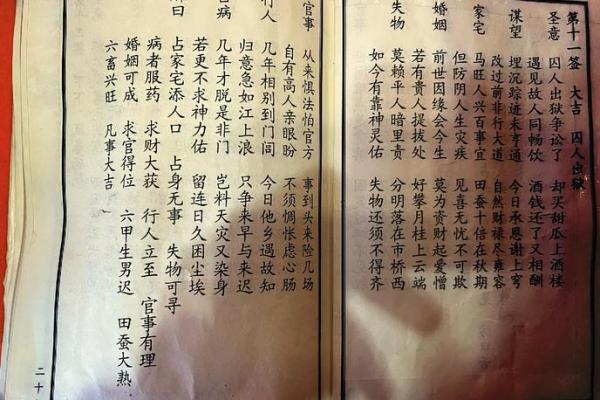 第十一签 大吉 囚人出狱
圣意 囚人出狱争讼了 却买甜瓜上酒楼
遇见故人同畅饮 酒钱还了又相酬
谋望 埋沉踪迹未亨通 今日承恩谢上穹
改过前非行大道 自然财禄尽雍容
家宅 马旺人兴百事宜 田蚕十倍在秋期
但防阴人生灾疾 见喜无忧不可欺
婚姻 前世因缘会今生 莫为资财起爱憎
若有贵人提拔处 好攀月桂上云端
失物 莫赖平人暗里责 分明落在市桥西
如今有靠神灵佑 失物还须不得齐
官事 从来惧法怕官方 事到头来险几场
自有高人亲眼盼 不须惆怅虑心肠
行人 几年相别到门闾 今日他乡遇故知
归意急如江上浪 只争来早与来迟
病 几年才脱是非门 岂料天灾又染身
若更不求神力佑 留连日久困尘埃
曰 占家宅添人口 占身无事 失物可寻
病者服药 求财大获 行人立至 官事有理
婚姻可成 求官得位 六甲生男迟 田蚕大熟
六畜兴旺 凡事大吉
二十